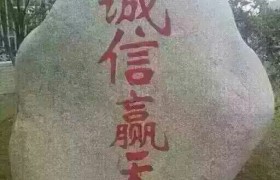 诚信赢天